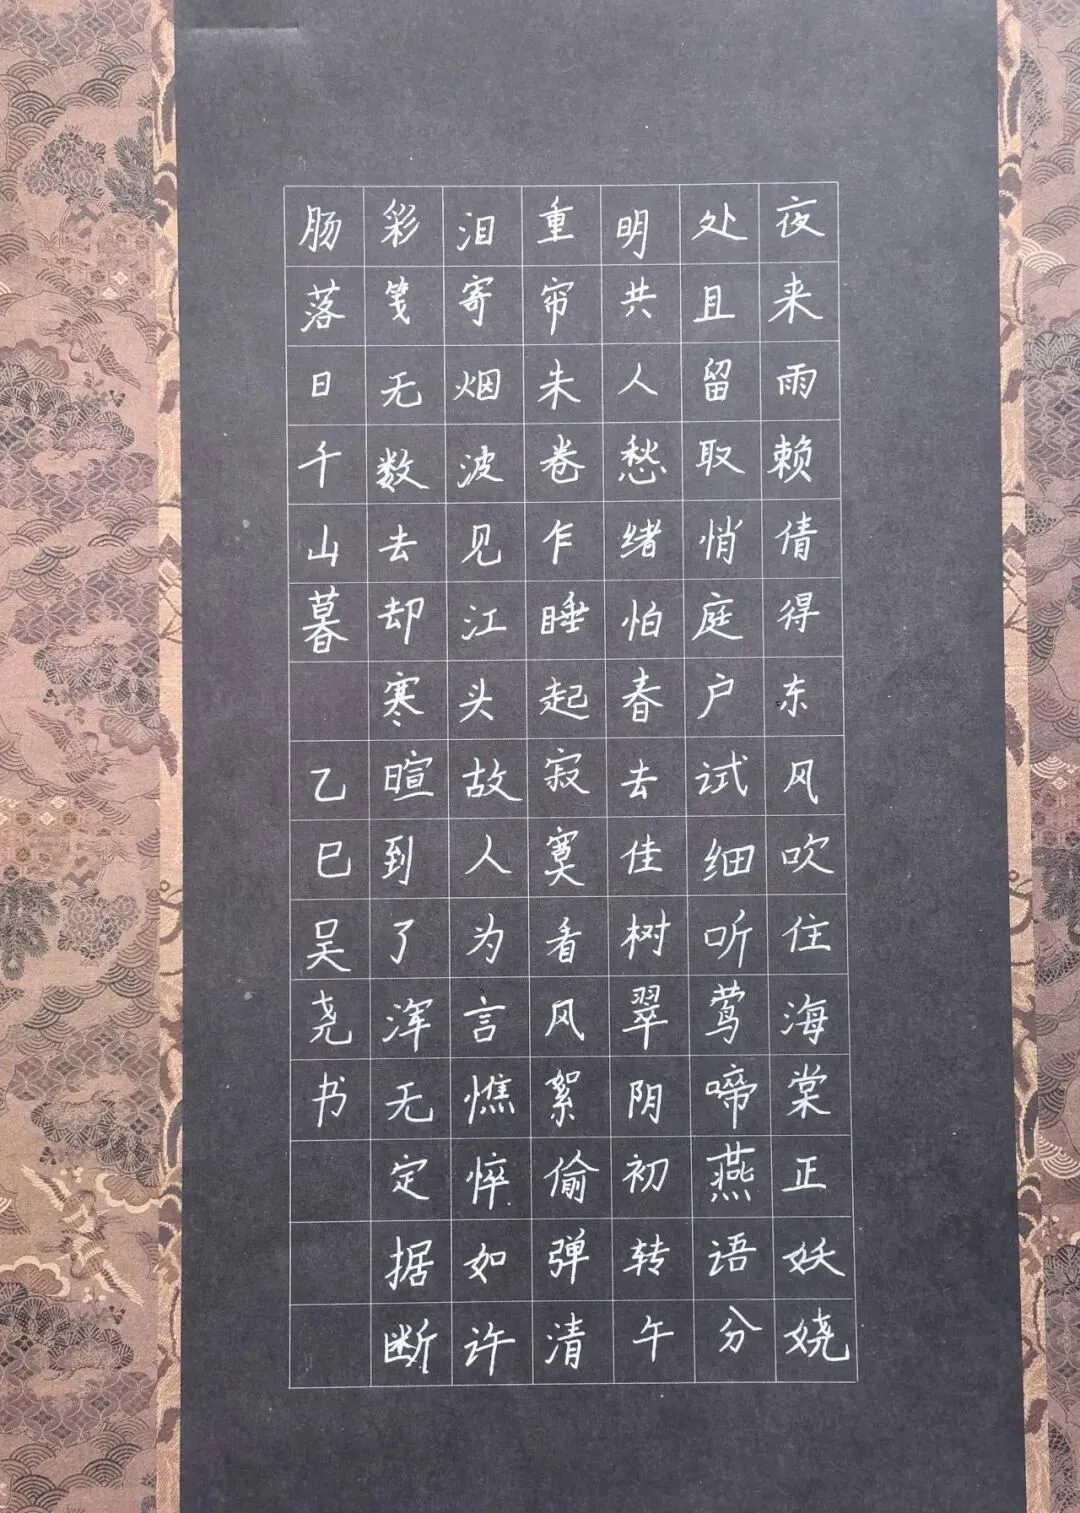 夜来雨赖倩得东风吹住海棠正妖娆
处且留取悄庭户试细听莺啼燕语分
明共人愁绪怕春去佳树翠阴初转午
重帘朱卷乍睡起寂寞看风絮偷弹清
泪寄烟波见江头故人为言憔悴如许
彩笺无数去却寒暄到了浑无定据断
肠落日千山暮 乙巳吴尧书